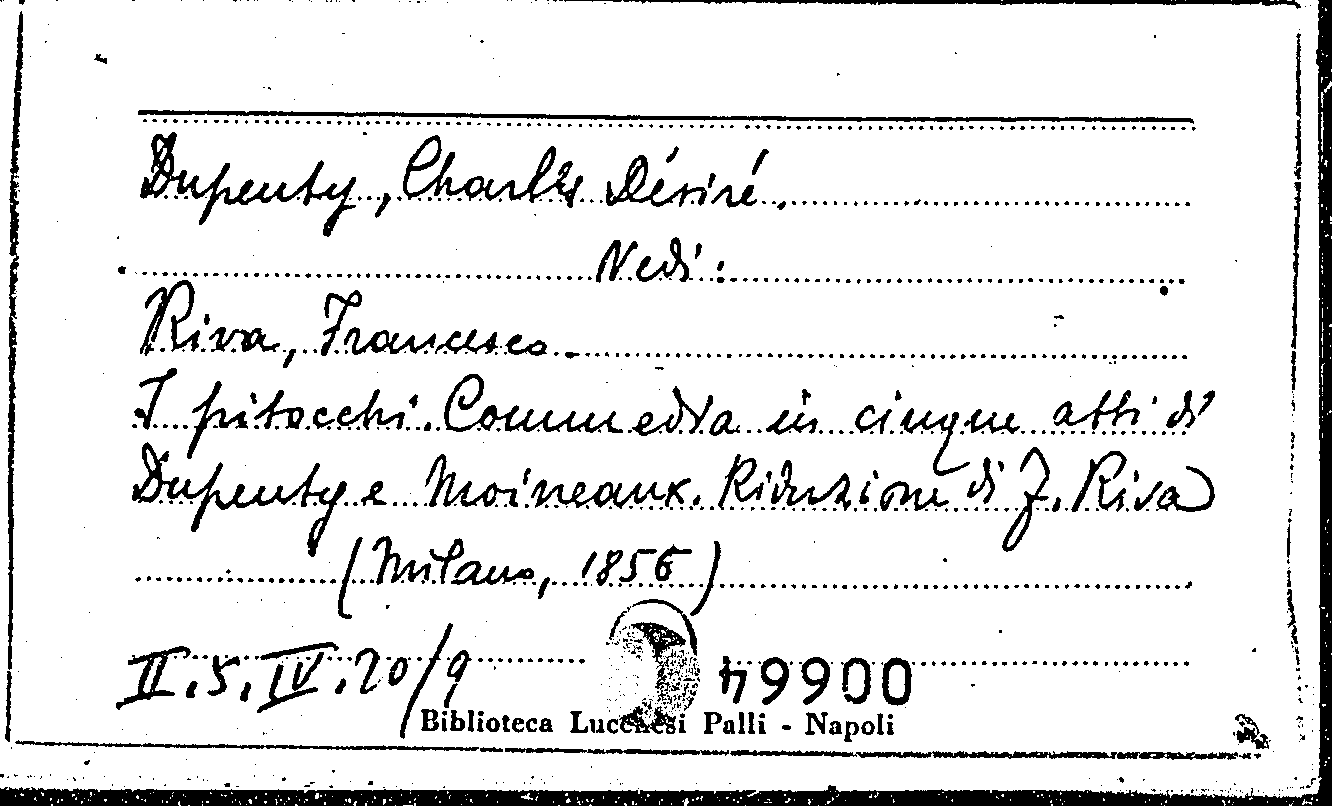 Dupeuty, Charles Désiré.
Vedi:
Riva, Francesco.
I pitocchi. Commedia in cinque atti di
Dupeuty e Moineaux. Riduzione di F. Riva
(Milano, 1856)
II.5.IV.20/9
49900
Biblioteca Lucchesi Palli - Napoli